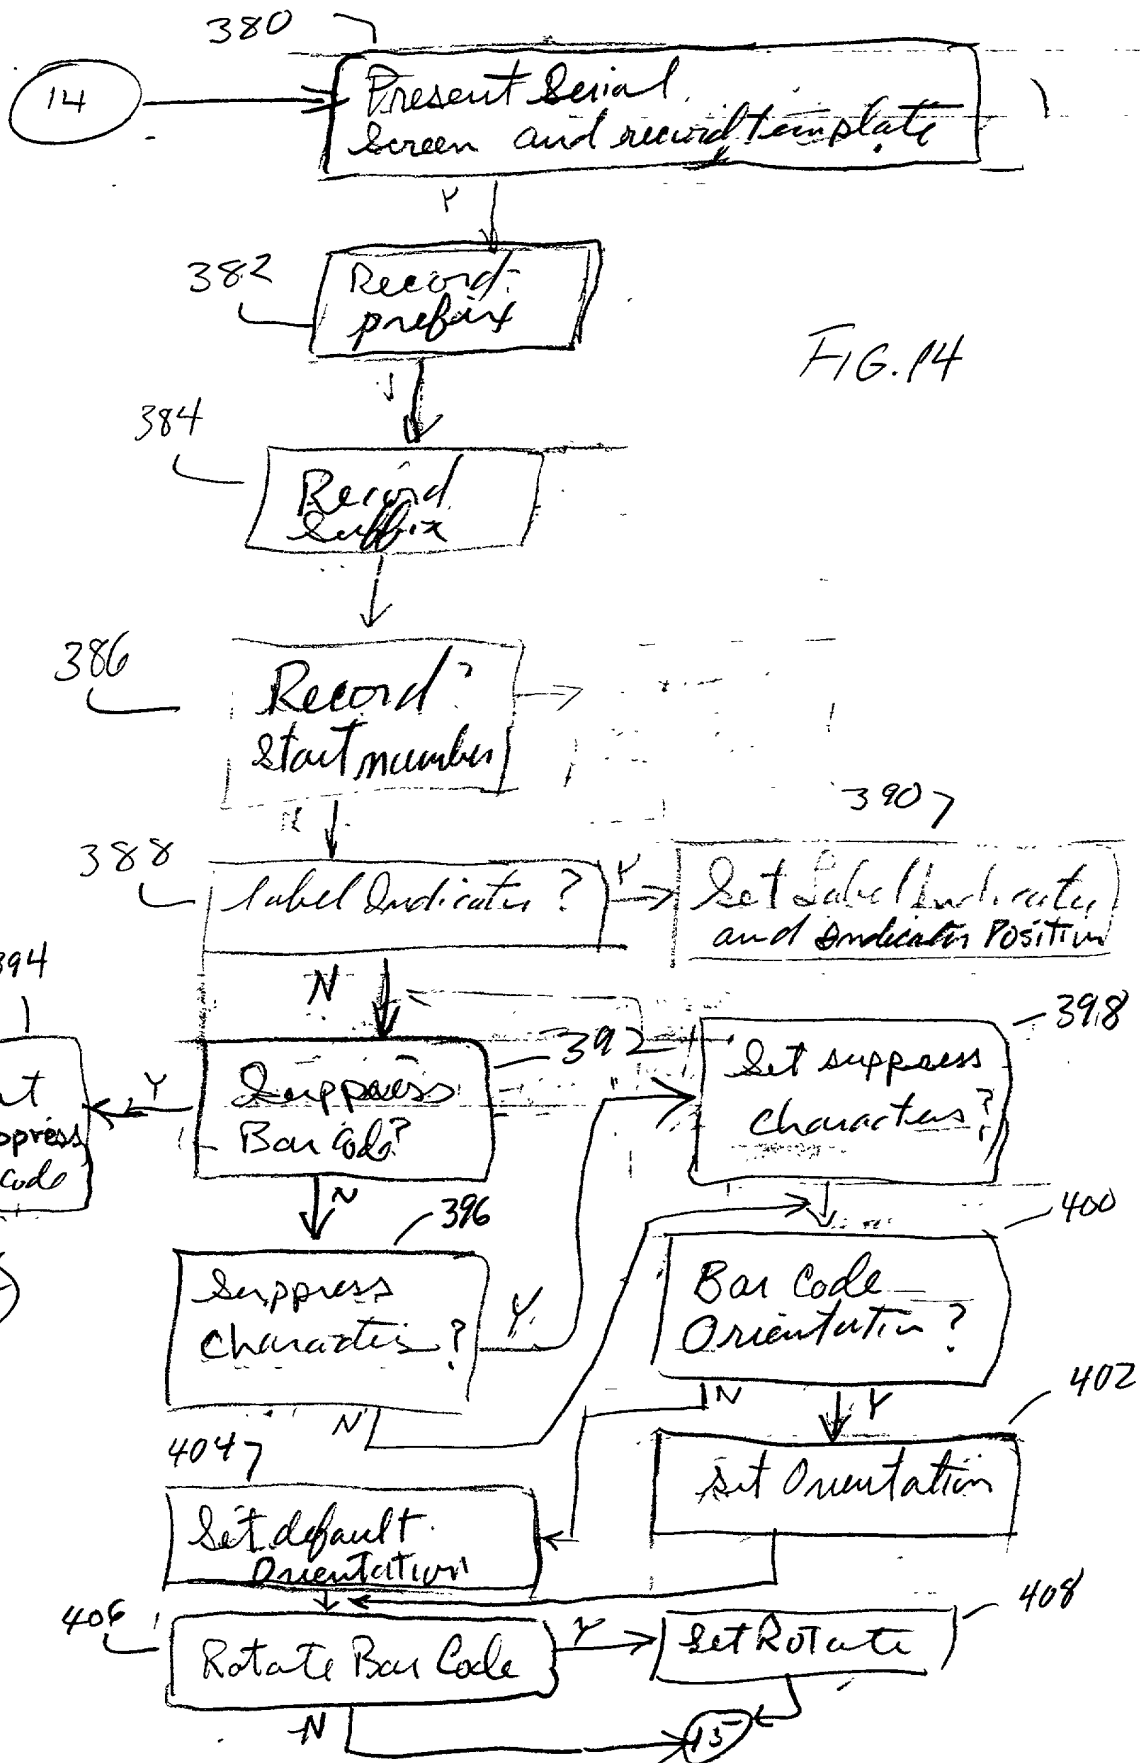 380
14
Present Serial
Screen and record template
Y
382
Record
prefix
FIG. 14
384
Record
Suffix
386
Record
Start number
390
388
Label Indicator ?
Y
Set Label Indicator
and Indicator Position
394
N
392
398
Suppress
Bar Code?
Y
Set suppress
characters?
ppress
Code
N
396
400
Suppress
Characters ?
Y
Bar Code
Orientation ?
N
N
Y
402
404
Set Orientation
Set default
Orientation
406
408
Rotate Bar Code
Y
Set Rotate
N
15